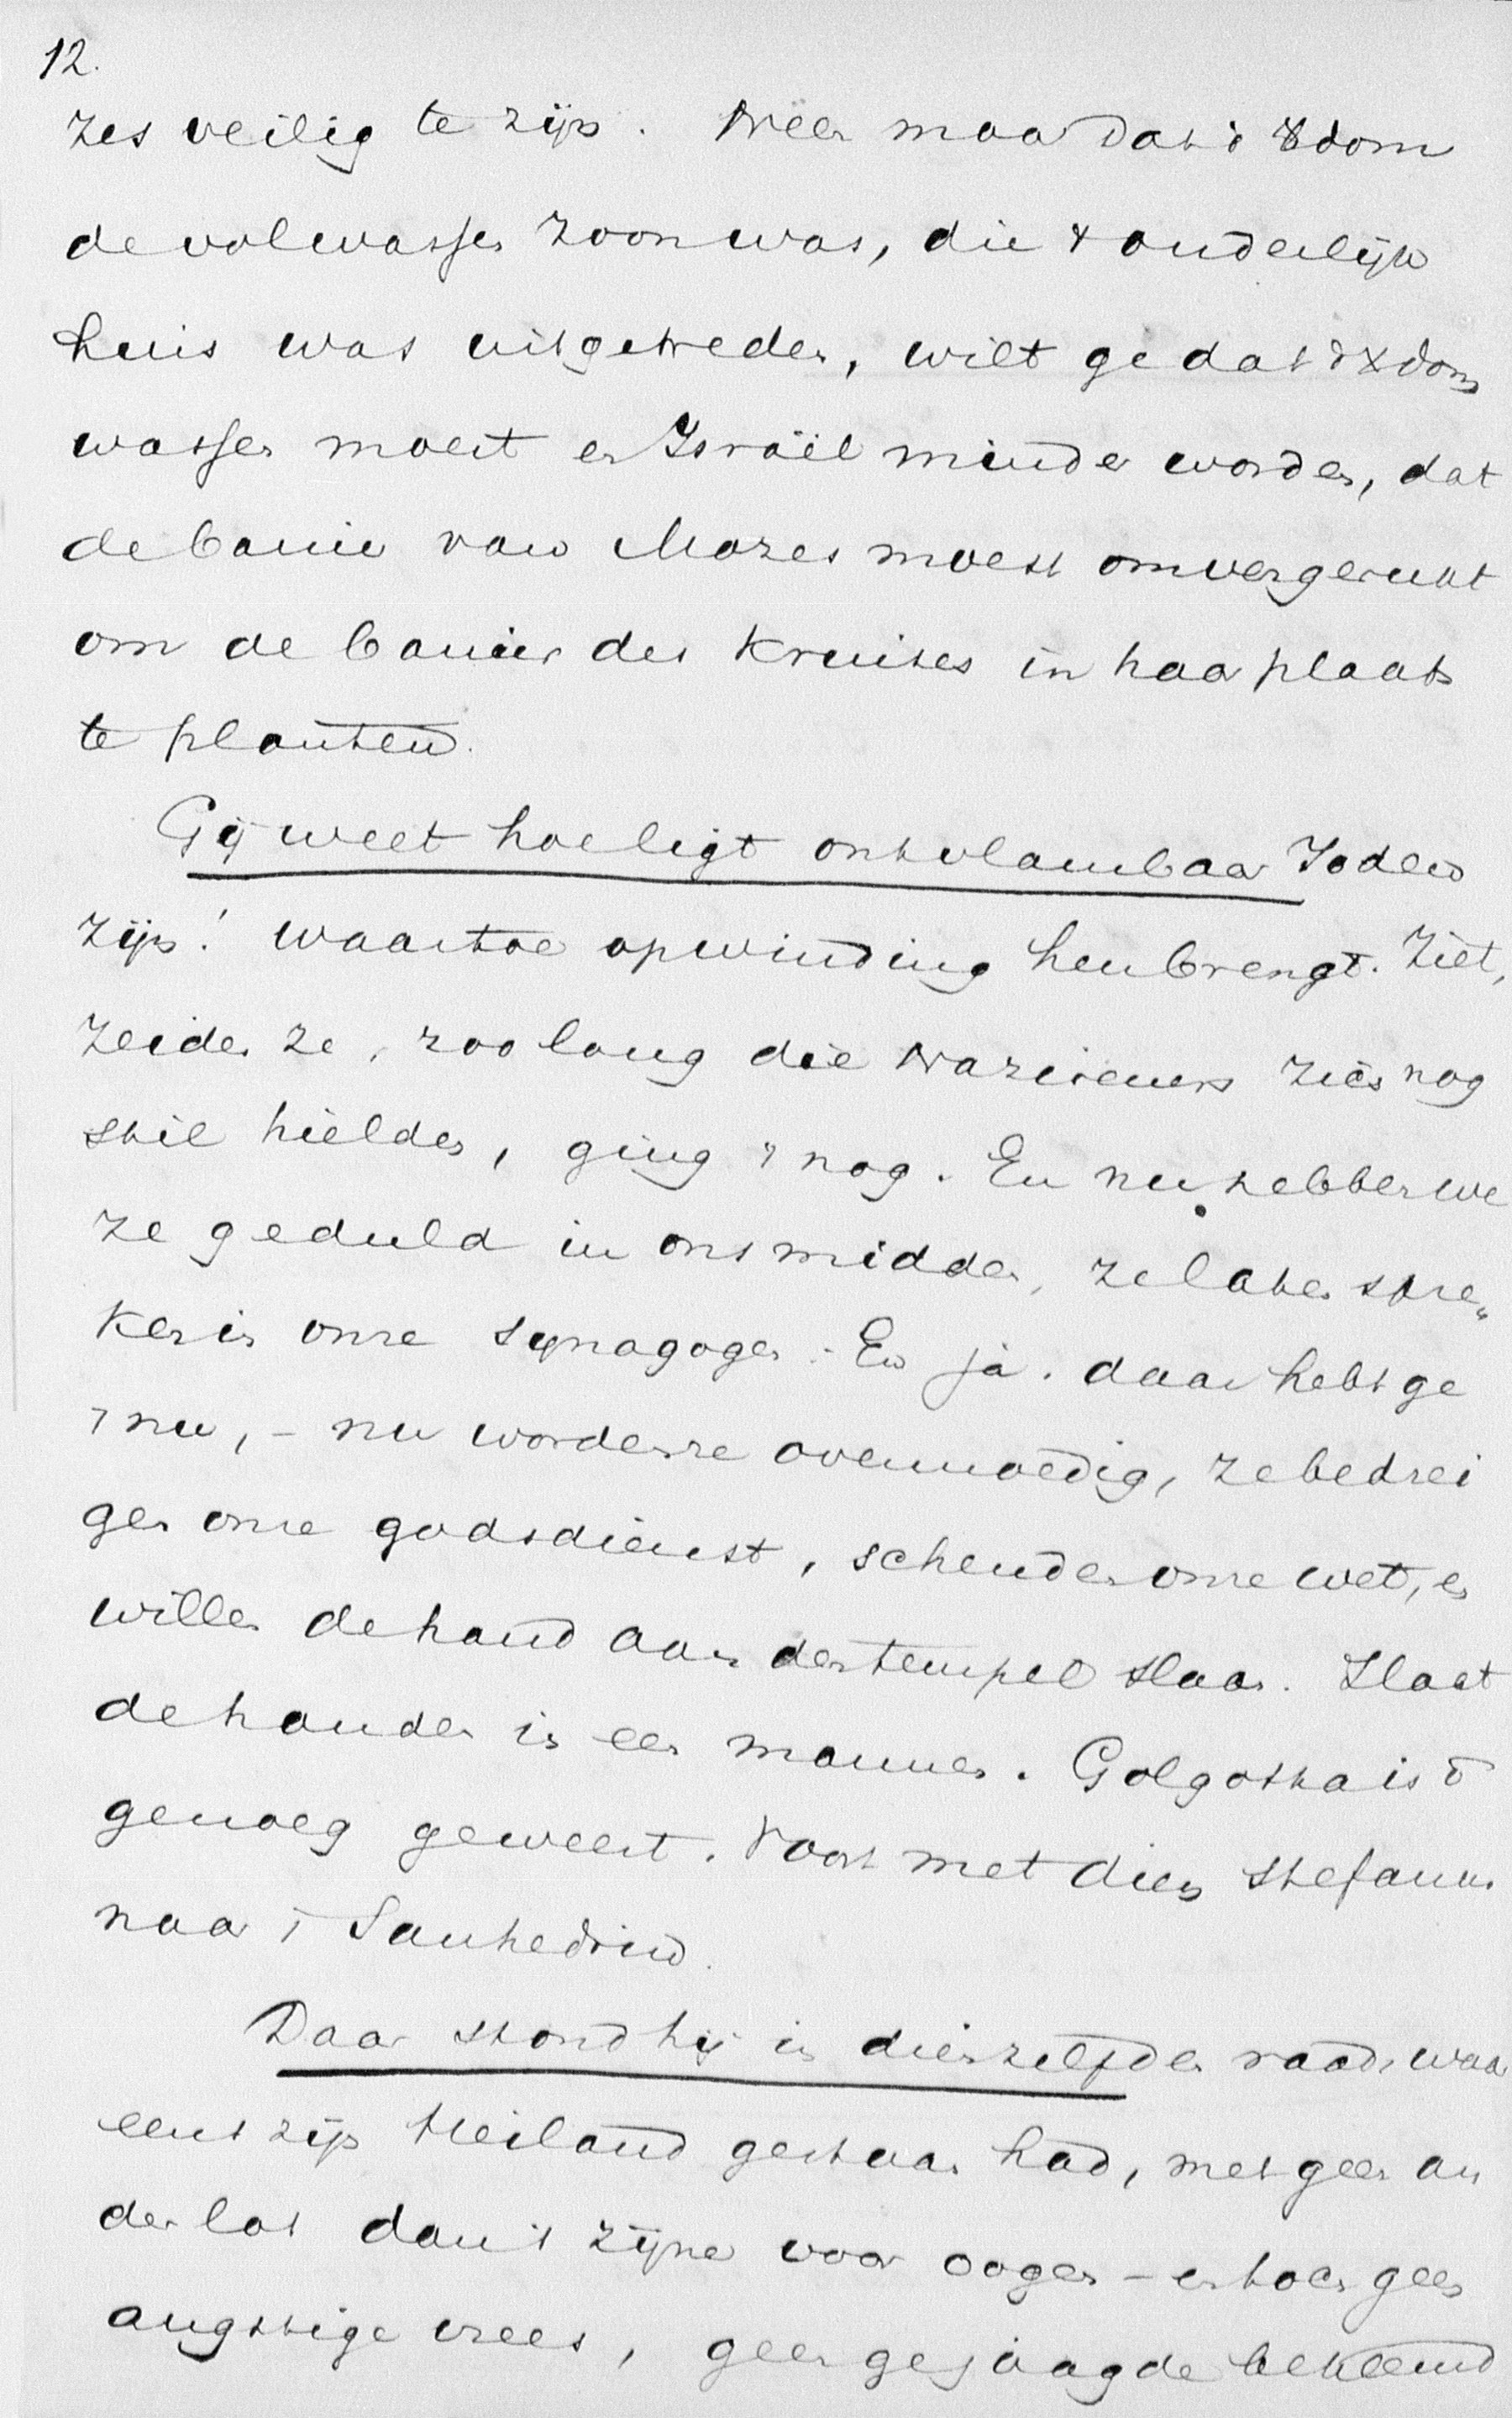 12.
zes veilig te zijn. Neen maar dat 't Xdom
de volwassen zoon was, die 't ouderlijk
huis was uitgetreden, wilt ge dat 't Xdom
wassen moest en Israël minder worden, dat
de banier van Mozes moest omvergerukt
om de banier des Kruises in haar plaats
te planten.
Gij weet hoe ligt ontvlambaar Joden
zijn! waartoe opwinding hen brengt. Ziet,
zeiden ze, zoo lang die Nazireners zich nog
stil hielden, ging 't nog. En nu hebben we
ze geduld in ons midden, ze laten spre„
ken in onze synagogen. En ja. daar hebt ge
't nu, - nu worden ze overmoedig, ze bedrei
gen onze godsdienst, schenden onze wet, en
willen de hand aan den tempel slaan. Slaat
de handen in een mannen. Golgotha is 't
genoeg geweest. Voort met dien Stefanus
naar 't Sanhedrin.
Daar stond hij in dienzelfden raad, waar
eens zijn Heiland gestaan had, met geen an
der lot dan 't zijne voor oogen - en toch geen
angstige vrees, geen gejaagde beklemd